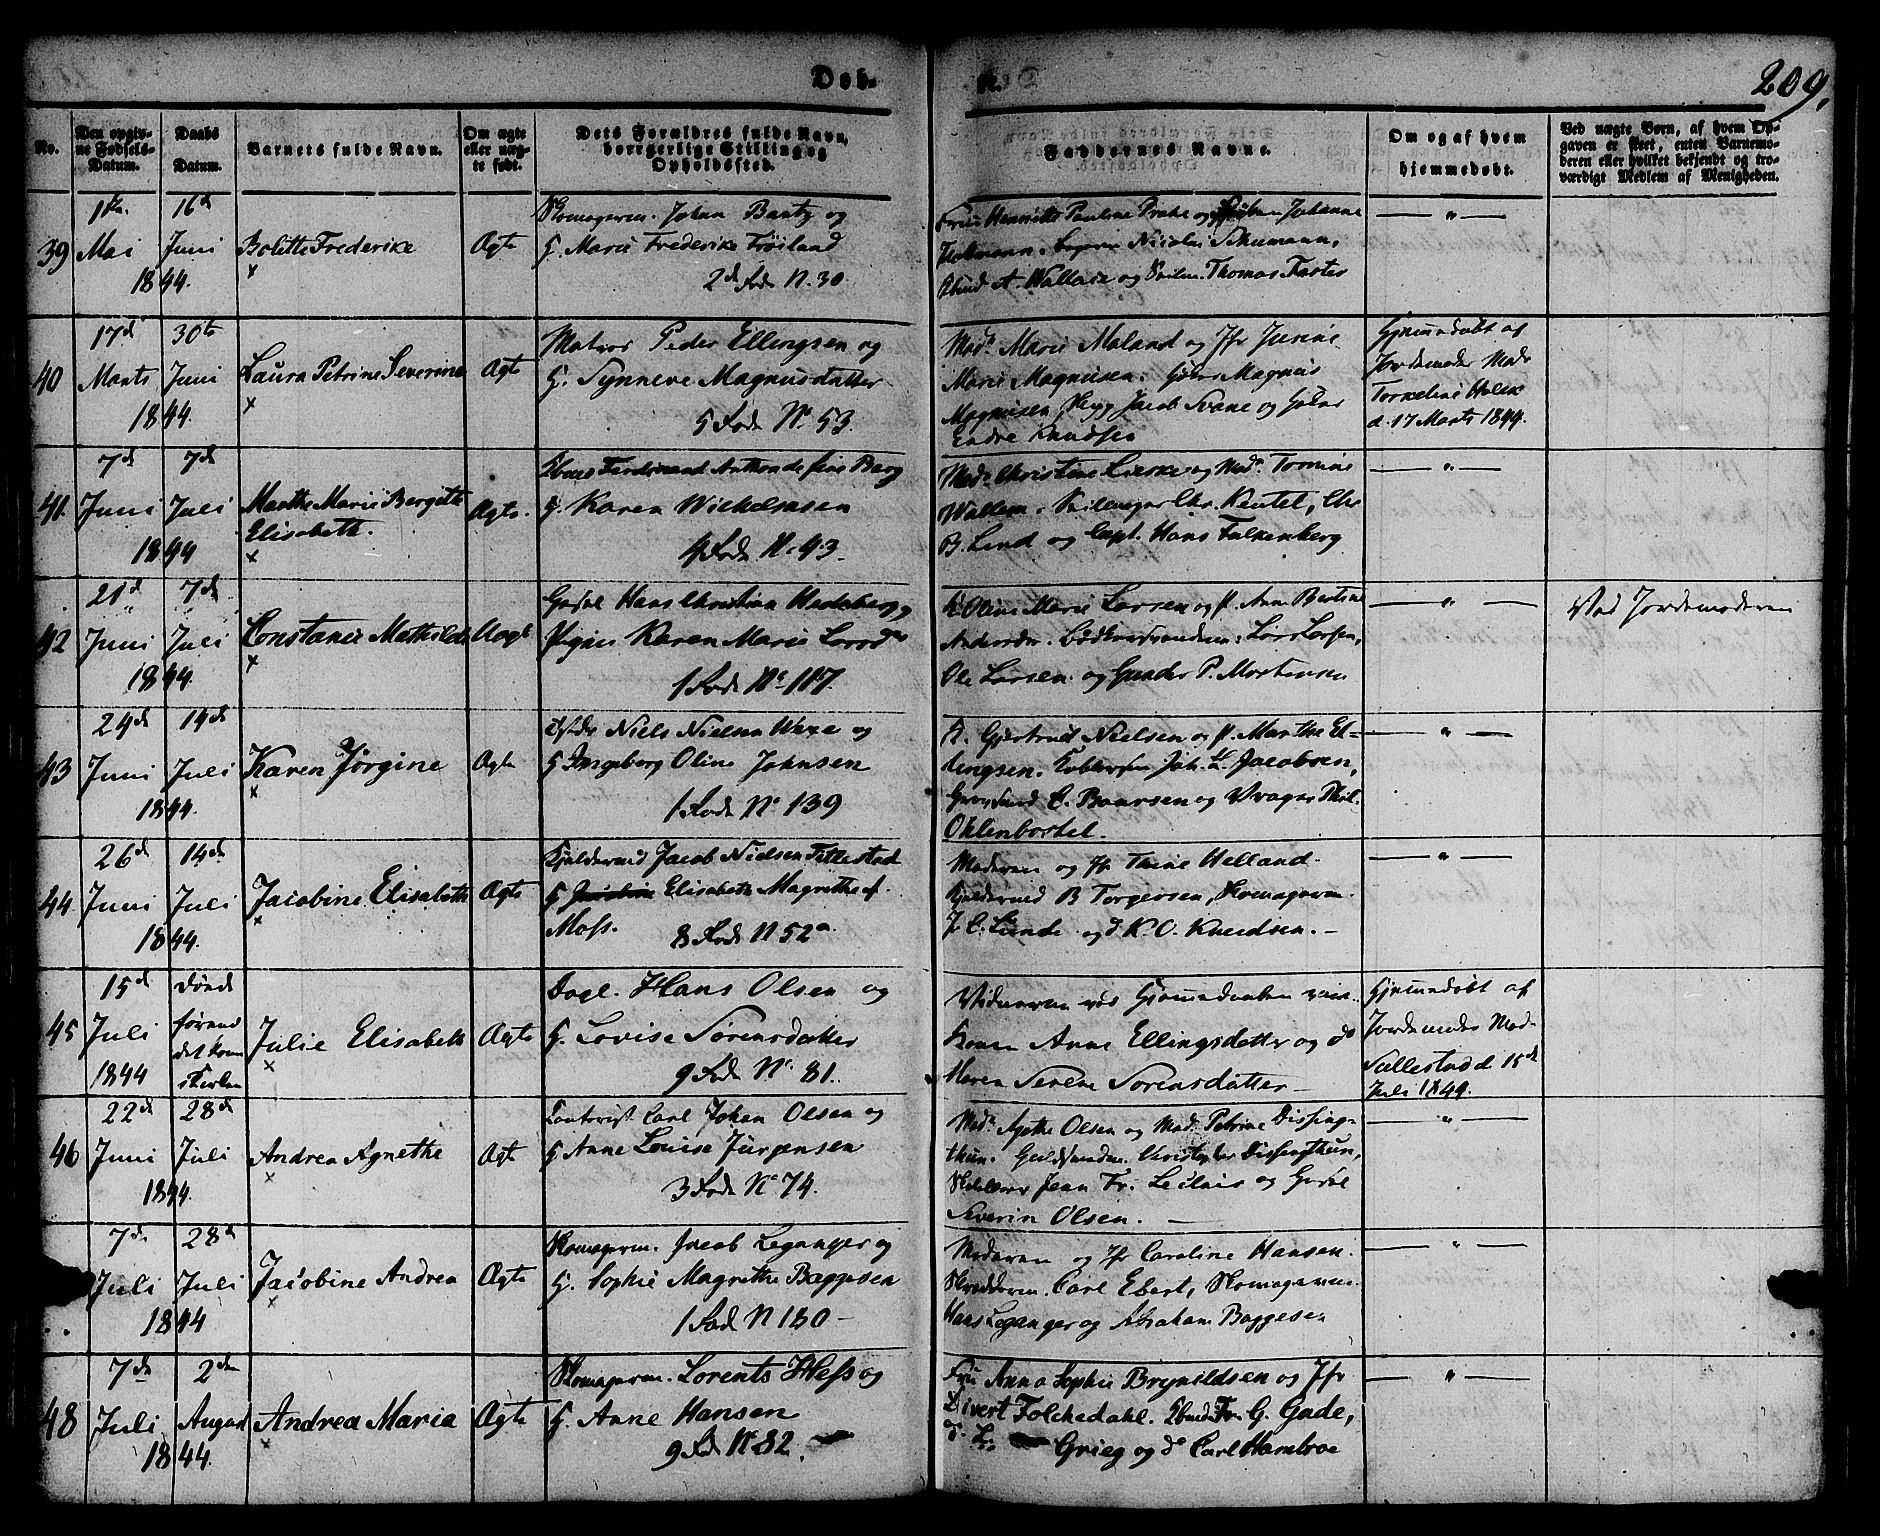 Døb-
te.
209,
No.
Den opgiv-
ne Fødsels-
Datum.
Daabs
Datum.
Barnets fulde Navn.
Om ægte
eller uæg-
te født.
Dets Forældres fulde Navn,
borgerlige Stilling og
Opholdssted.
Faddernes Navne.
Om og af hvem
hjemmedøbt.
Ved uægte Børn, af hvem Op-
gaven er skeet, enten Barnemo-
deren eller hvilket bekjendt og tro-
værdigt Medlem af Menigheden.
39
Mai
1844.
16d
Juni
Bolette Frederike
×
Ægte
Skomagerm. Johan Bantz og
H. Marie Frederike Frøiland
2de Rode N. 30
Henriette Pauline Prahe og Johanne
Nicolai Schumann,
A. Wallace og Thomas Faster
— " —
40
17d
Marts
1844.
30te
Juni
Laura Petrine Severine
×
Ægte
Matros Peder Ellingsen og
H. Synneve Magnusdatter
5 Rode No. 53.
Madm. Marie Maland og Jfr
Marie Magnusen. Magnus
Magnusen, Jacob Svane og
Endre Knudsen
Hjemmedøbt af
Jordemoder Mad.
Torkeline Holck
d. 17 Marts 1844.
41
7d
Juni
1844
7d
Juli
Marthe Marie Bergitte
Elisabeth.
×
Ægte.
Ferdinand Berg
H. Karen Wilhelmsen
4 Rode N. 43.
Mad. Christine og Mad.
Chr. Rentel, Chr
B. Lind og Capt. Hans Falkenberg
— " —
42
21d
Juni
1844.
7d
Juli
Constance Mathilde
×
Uægte
Hans Christian og
Pigen Karen Marie
1 Rode No 117.
Oline Marie Larsen og P. Anne Bertine
Lars Larsen,
Ole Larsen og Gunder P. Mortensen
— " —
Ved Jordemoderen
43
24de
Juni
1844.
14de
Juli
Karen Jørgine
×
Ægte
Niels Nielsen og
H Ingeborg Oline Johnsen
1 Rode No 139
K. Gjertrud Nielsen og P. Marthe El-
lingsen. Joh. L. Jacobsen,
C. Baarsen og Vrager
Ohlenbostel.
— " —
44
26de
Juni
1844.
14de
Juli
Jacobine Elisabeth
×
Ægte
Kjeldersvend Jacob Nielsen Fittestad
H Elisabeth Magrethe f.
Moss. 8 Rode N 52a
Moderen og Jfr Thrine Helland
Kjeldersvend B Torgersen, Skomagerm.
J. C. Lunde og d K. O. Knudsen. —
— " —
45
15d
Juli
1844
Døde
førend
det kom
i Kirken
Julie Elisabeth
×
Ægte
Dagl. Hans Olsen og
H. Lovise Sørensdatter
9 Rode No. 81.
Vidnerne ved Hjemmedaaben vare
Konen Anne Ellingsdatter og do
Maren Serene Sørensdatter —
Hjemmedøbt af
Jordemoder Mad.
Sællestad d 15de
Juli 1844.
46
22de
Juni
1844
28de
Juli
Andrea Agnethe
×
Ægte
Contorist Carl Johan Olsen og
H Anne Louise Jürgensen
3 Rode No 74.
Mad. Agethe Olsen og Mad. Petrine Dissing-
thun. Guldsmedm. Christopher Dissingthun,
Jean Fr. Leclais og
Severin Olsen. —
— " —
7de
Juli
1844
28d
Juli
Jacobine Andrea
×
Ægte
Skomagerm. Jacob Leganger og
H. Sophie Magrethe Baggesen
1 Rode N 180 —
Moderen og Jfr Caroline Hansen.
Skrædderm. Carl Ebert, Skomagerm.
Hans Leganger og Abraham Baggesen
— " —
48
7de
Juli
1844.
2den
August
Andrea Maria
×
Ægte
Skomagerm. Lorents Hess og
H. Anne Hansen
9 Rode No 82.
Fru Anna Sophie Brynildsen og Jfr
Divert Folckedahl. Fr. G. Gade,
Grieg og do Carl Hambroe
— " —